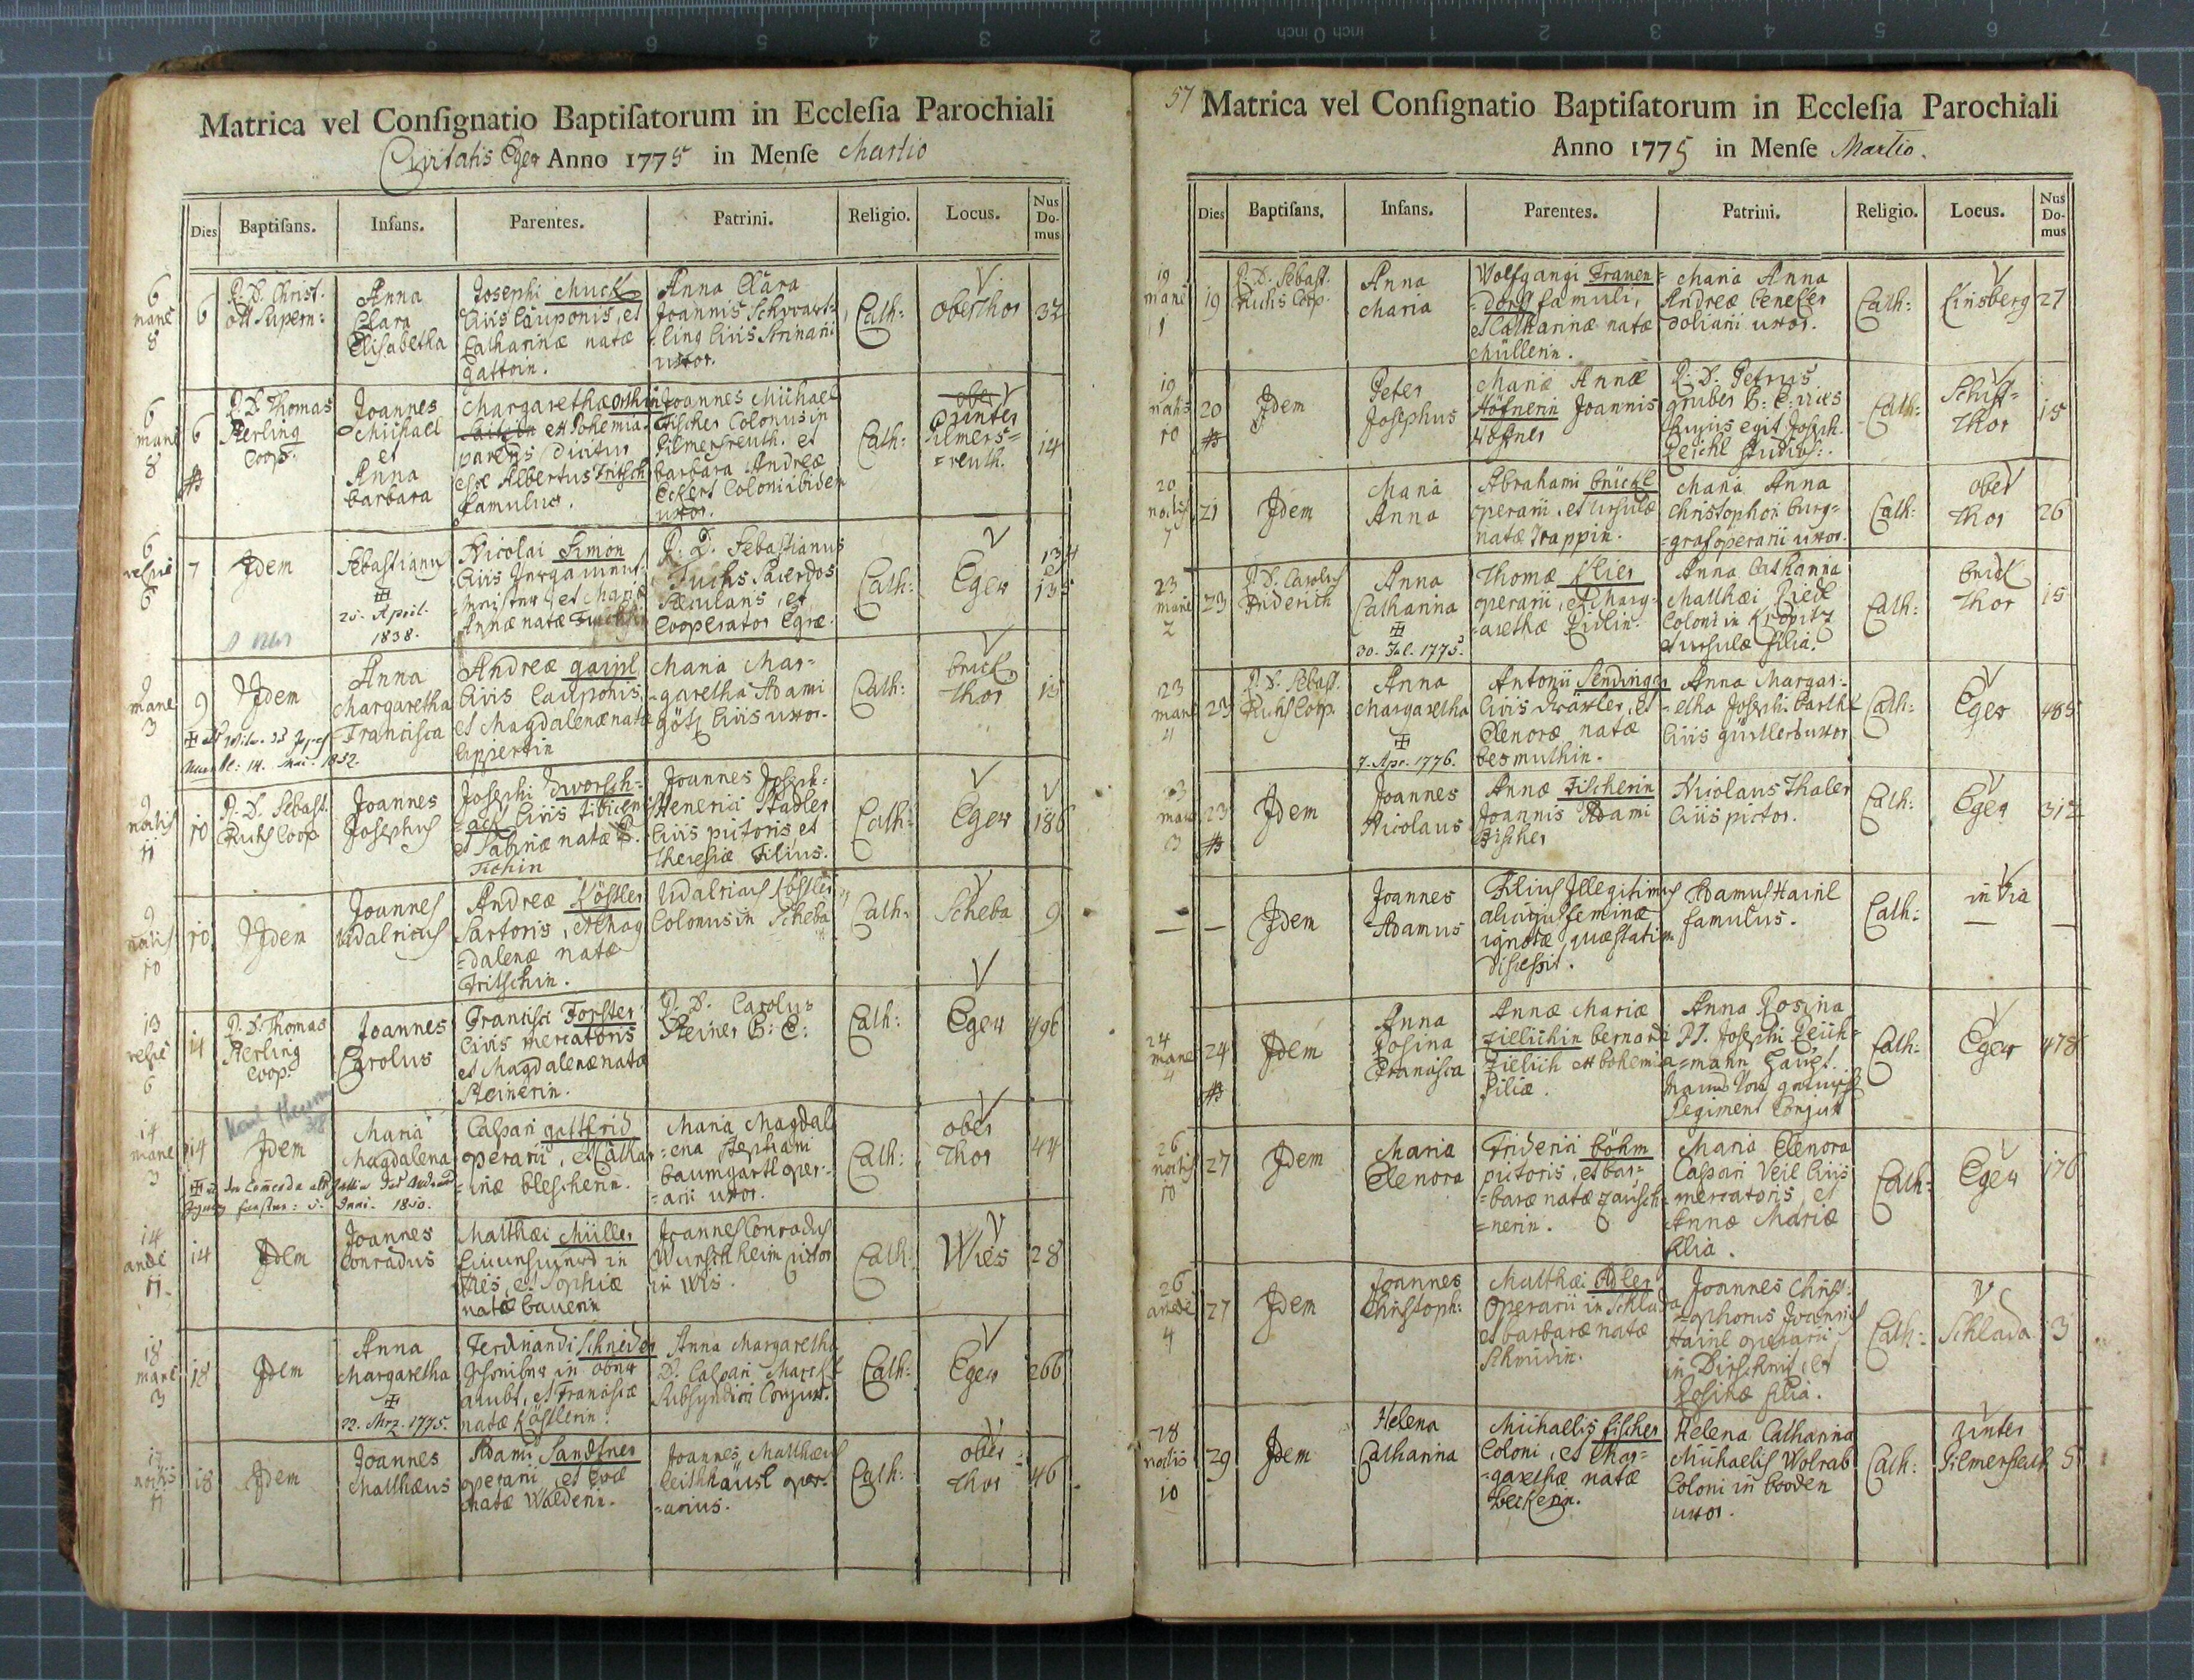 Matrica vel Consignatio Baptisatorum in Ecclesia Parochiali
Civitatis Eger Anno 1775 in Mense Martio
Dies Baptisans. Infans. Parentes. Patrini. Religio. Locus. Nus Domus
6 mane 8
6
P. D. Christ.
ott Supern:
Anna
Clara
Elisabetha
Josephi Muck
Civis Cauponis, et
Catharinæ natæ
Anna Clara
Joannis
uxor.
Cath:
Oberthor
32
6 mane 8
6
P. D. Thomas
Sterling
Coop.
Joannes
Michael
et
Anna
Barbara
Margarethæ
ex Bohemia
parens dicitur
esse Albertus Fritsch
famulus.
Joannes Michael
Fischer Colonus in
Pilmersreuth, et
Barbara Andreæ
Eckert Coloni ibidem
uxor.
Cath:
ober
Unter
Pilmers=
=reuth.
14
6
7
Idem
Sebastianus
25. April.
1838.
Nicolai Simon
Civis
et Mariæ
Annæ natæ
P. D. Sebastianus
Fuchs Sacerdos
Sæcularis, et
Cooperator Egræ.
Cath:
Eger
134
135
9 mane 3
9
Idem
Anna
Margaretha
Francisca
14. 1832.
Andreæ gaipl
Civis Cauponis,
et Magdalenæ natæ
Lippertin
Maria Mar=
=garetha Adami
götz Civis uxor.
Cath:
bruck
Thor
15
9 noctis 11
10
P. D. Sebast.
Fuchs Coop.
Joannes
Josephus
Josephi Dworsch=
=ack Civis tibicenis
et Sabinæ natæ
Joannes Joseph:
Henerici Stadler
Civis pictoris et
Theresiæ Filius.
Cath:
Eger
186
9 noctis 10
10
Idem
Joannes
Udalricus
Andreæ Köstler
Sartoris, et Mag
=dalenæ natæ
Fritschin.
Udalricus Köstler
Colonus in Scheba
Cath:
Scheba
9
13
6
14
P. D. Thomas
Sterling
Coop:
Joannes
Carolus
Francisci Forster
Civis mercatoris
et Magdalenæ natæ
Steinerin.
P. D. Carolus
Steiner B: C:
Cath:
Eger
496
14 mane 3
14
Idem
Maria
Magdalena
1850.
Caspari gottfrid
operarii, et Cathar
=inæ blescherin.
Maria Magdal
=ena Stephani
baumgartl oper=
=arii uxor.
Cath:
ober
Thor
44
14
11
14
Idem
Joannes
Conradus
Matthæi Müller
in
Wies, et Sophiæ
natæ bauerin
Joannes Conradus
Wunschheim
in Wis.
Cath:
Wies
28
18 mane 3
18
Idem
Anna
Margaretha
22. Mrz. 1775.
Ferdinandi Schneider
in
et Franciscæ
natæ Köstlerin.
Anna Margaretha
D. Caspari
Subsyndici Conjux.
Cath:
Eger
266
17 noctis 11
18
Idem
Joannes
Matthæus
Adami Sandtner
operarii, et Evæ
natæ Walderin.
Joannes Matthæus
oper=
=arius.
Cath:
ober
Thor
46
57
Matrica vel Consignatio Baptisatorum in Ecclesia Parochiali
Anno 1775 in Mense Martio.
Dies Baptisans. Infans. Parentes. Patrini. Religio. Locus. Nus Domus
19 mane 1
19
P. D. Sebast.
Fuchs Coop.
Anna
Maria
Wolfgangi Frauen=
=dorf famuli,
et Catharinæ natæ
Müllerin.
Maria Anna
Andreæ
doliarii uxor.
Cath:
Kinsberg
27
19 noctis 10
20
Idem
Peter
Josephus
Mariæ Annæ
Höfnerin Joannis
Höfner
P. D. Petrus
gruber
egit Joseph.
Reichl Studios:.
Cath:
Schift=
Thor
15
20 noctis 7
21
Idem
Maria
Anna
Abrahami brückl
operarii, et Ursulæ
natæ Trappin.
Maria Anna
Christophori burg=
=graf operarii uxor.
Cath:
ober
Thor
26
23 mane 2
23
P. D. Carolus
Friderich
Anna
Catharina
30. Jul. 1775.
Thomæ Klier
operarii, et Marg=
=arethæ
Anna Catharina
Matthæi
Coloni in Kropitz
et Ursulæ filia.
Cath:
bruck
Thor
15
23 mane 4
23
P. D. Sebast.
Fuchs Coop.
Anna
Margaretha
7. Apr. 1776.
Antonii Sendinger
Civis et
Elenoræ natæ
besmuthin.
Anna Margar=
=etha Josephi
Civis gürtlers uxor
Cath:
Eger
485
23 mane 3
23
Idem
Joannes
Nicolaus
Annæ Fischerin
Joannis Adami
Fischer
Nicolaus Thaler
Civis pictor.
Cath:
Eger
312
—
—
Idem
Joannes
Adamus
Filius Illegitimus
alicujus feminæ
ignotæ, quæ statim
discessit.
Adamus Hainl
famulus.
Cath:
in Via
—
—
24 mane 4
24
Idem
Anna
Rosina
Francisca
Annæ Mariæ
Zielichin bernardi
Zielich ex bohemia
filiæ.
Anna Rosina
Josephi Reich=
=mann
Regiment Conjux
Cath:
Eger
478
26 noctis 10
27
Idem
Maria
Elenora
Friderici böhm
pictoris, et bar=
=baræ natæ Zausch=
=nerin.
Maria Elenora
Caspari Veil Civis
mercatoris, et
Annæ Mariæ
filia.
Cath:
Eger
176
26
4
27
Idem
Joannes
Christoph:
Matthæi Adler
Operarii in Schlada
et barbaræ natæ
Schmidin.
Joannes Christ=
=ophorus Joannis
Hainl operarii
in Dirschnitz, et
Rosinæ filia.
Cath:
Schlada
3
28 noctis 10
29
Idem
Helena
Catharina
Michaelis fischer
Coloni, et Mar=
=garethæ natæ
Heckerin.
Helena Catharina
Michaelis Wolrab
Coloni in booden
uxor.
Cath:
Unter
Pilmersreut
5